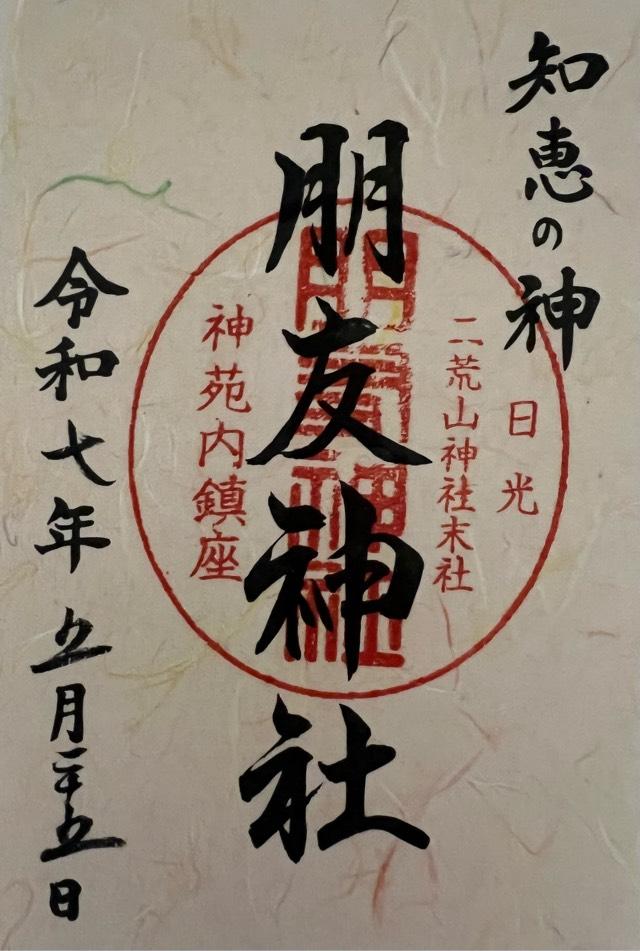 知恵の神
日光
二荒山神社末社
朋友神社
神苑内鎮座
令和七年五月二十五日